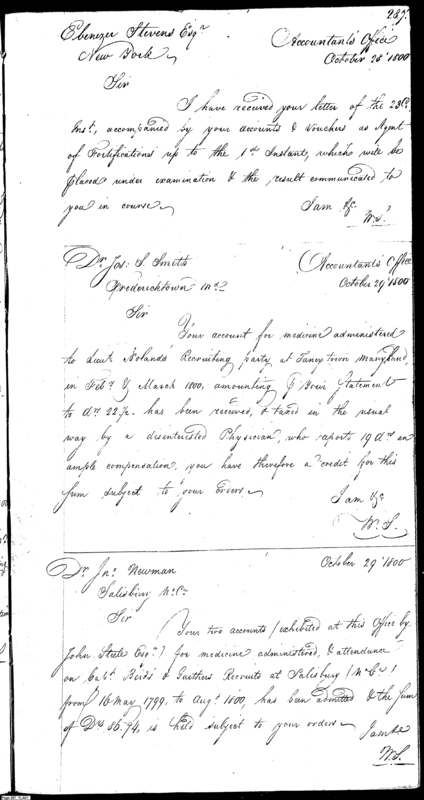 287.
Ebenezer Stevens Esqr
New York
Accountants Office
October 28th 1800
Sir
I have received your letter of the 23d
Inst, accompanied by your accounts & vouchers as Agent
of Fortifications up to the 1st Instant, which will be
placed under examination & the result communicated to
you in course
I am &c
W.S.
Dr Jos: S. Smith
Fredericktown Md
Accountants Office
October 29th 1800
Sir
Your account for medicine administered
to Lieut Nolands Recruiting party at Taney town Maryland,
in Feby & March 1800, amounting Your Statement
to Drs 22 has been received, & taxed in the usual
way by a disinterested Physician, who reports 19 Drs an
ample compensation, you have therefore a credit for this
sum subject to your orders
I am &c
W. S.
October 29th 1800
Dr Jno Newman
Salisbury N. Ca
Sir
Your two accounts (exhibited at this Office by
John Steele Esqr) for medicine administered, & attendance
on Capts Birds & Gaithers Recruits at Salisbury (N. Ca)
from 16 May 1799, to Augt 1800, has been admitted & the Sum
of Drs 86.94, is held subject to your orders
I am &c
W.S.